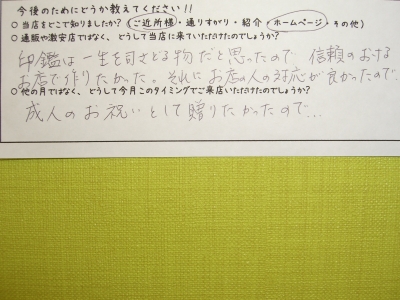 今後のためにどうか教えてください!!
○当店をどこで知りましたか?(ご近所様・通りすがり・紹介・ホームページ・その他)
○通販や激安店ではなく、どうして当店に来ていただけたのでしょうか?
印鑑は一生を司さどる物だと思ったので 信頼のおける
お店で作りたかった。それにお店の人の対応が良かったので…
○他の月ではなく、どうして今月このタイミングでご来店いただけたのでしょうか?
成人のお祝いとして贈りたかったので…